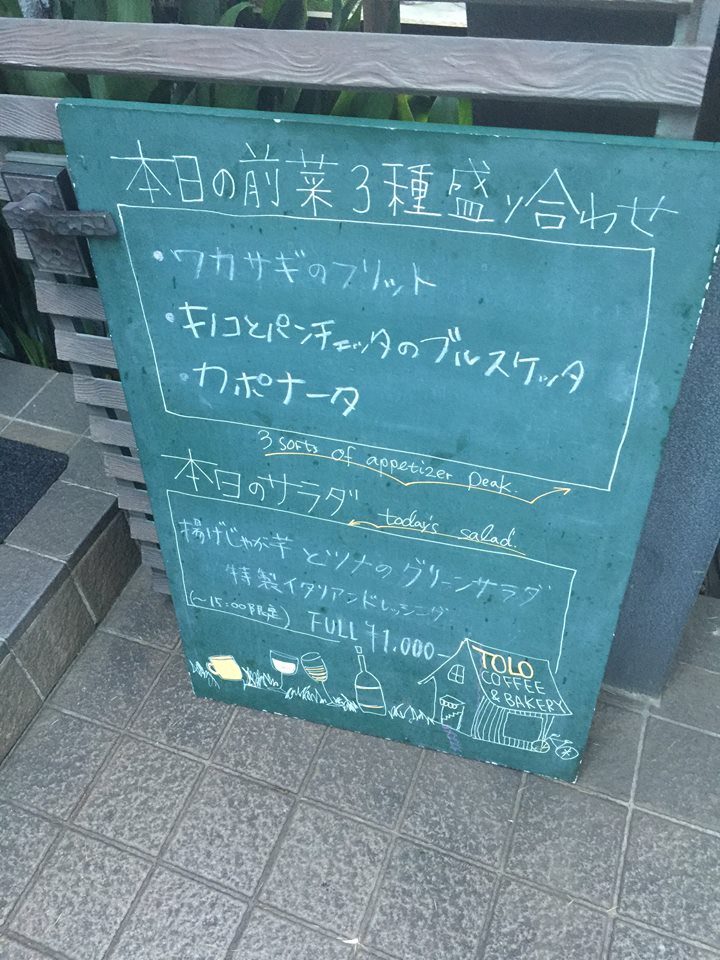 本日の前菜3種盛り合わせ
・ワカサギのフリット
・キノコとパンチェッタのブルスケッタ
・カポナータ
3 sorts of appetizer peak.
本日のサラダ
today's salad.
揚げじゃが芋とツナのグリーンサラダ
特製イタリアンドレッシング
(～15:00限定) FULL ¥1,000-
TOLO
COFFEE
& BAKERY